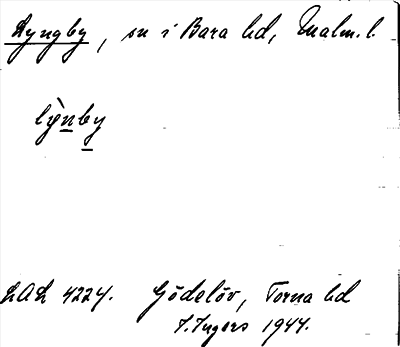 Lyngby, sn i Bara hd, Malm. l.
lỳnby
LAL 4224. Gödelöv, Torna hd
I. Ingers 1944.